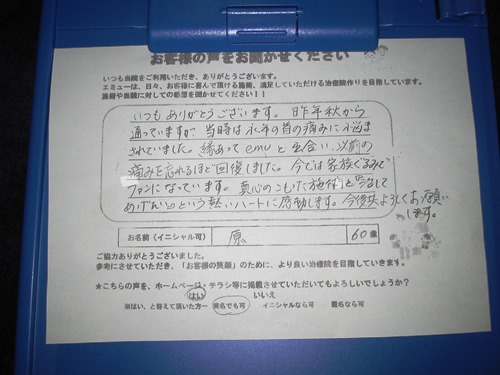 お客様の声をお聞かせください
いつも当院をご利用いただき、ありがとうございます。
エミューは、日々、お客様に喜んで頂ける施術、満足していただける治療院作りを目指しています。
施術や当院に対しての感想を聞かせてください！！
いつもありがとうございます。昨年秋から
通っていますが、当時は永年の首の痛みに悩ま
されていました。縁あってemuと出会い、以前の
痛みを忘れるほど回復しました。今では家族ぐるみで
ファンになっています。真心のこもった施術と治して
あげたいという熱いハートに感動します。今後共よろしくお願い
します。
お名前（イニシャル可） 原 60歳
ご協力ありがとうございました。
参考にさせていただき、「お客様の笑顔」のために、より良い治療院を目指していきます。
★こちらの声を、ホームページ・チラシ等に掲載させていただいてもよろしいでしょうか？
はい いいえ
※はい、と答えて頂いた方→ 実名でも可 イニシャルなら可 匿名なら可